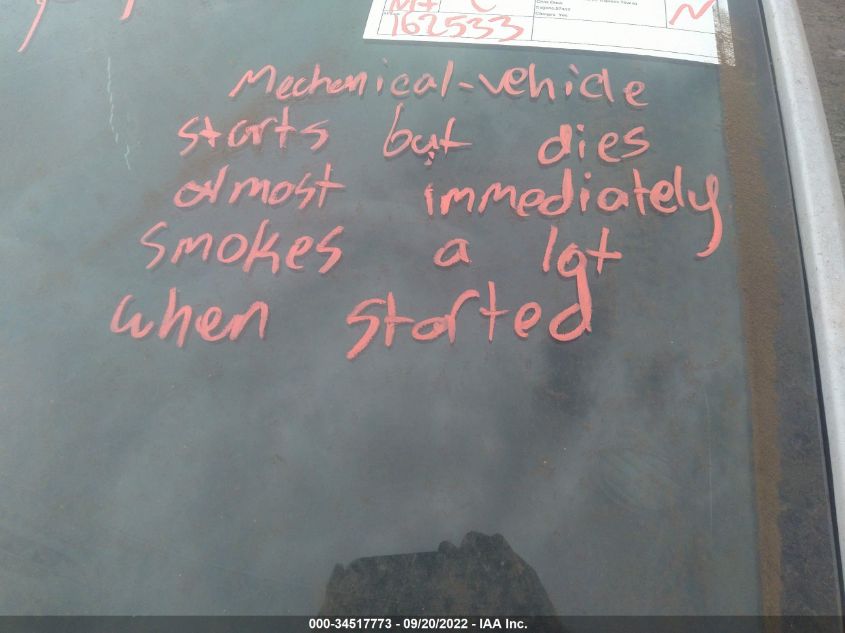 162533
N
Mechanical-vehicle
starts but dies
almost immediately
smokes a lot
when started
000-34517773 - 09/20/2022 - IAA Inc.